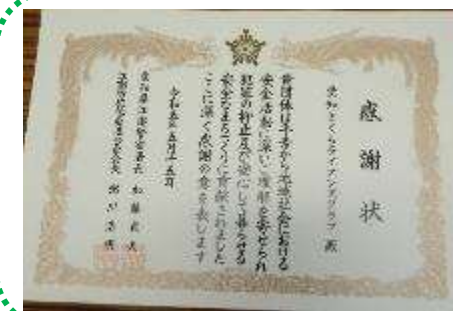 感謝状
愛知さくらライオンズクラブ 殿
貴団体は平素から地域社会における
安全活動に深いご理解を寄せられ
犯罪の抑止及び安心して暮らせる
安全なまちづくりに貢献されました
ここに深く感謝の意を表します
令和五年五月十五日
愛知県江南警察署長 加藤